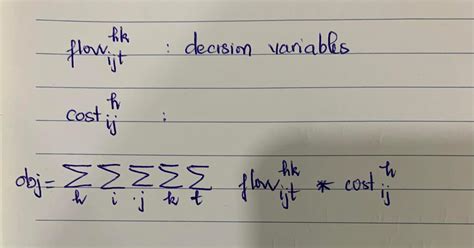 flow_{ijt}^{hk} : decision variables
cost_{ij}^{h} :
obj = ∑_h ∑_i ∑_j ∑_k ∑_t flow_{ijt}^{hk} * cost_{ij}^{h}